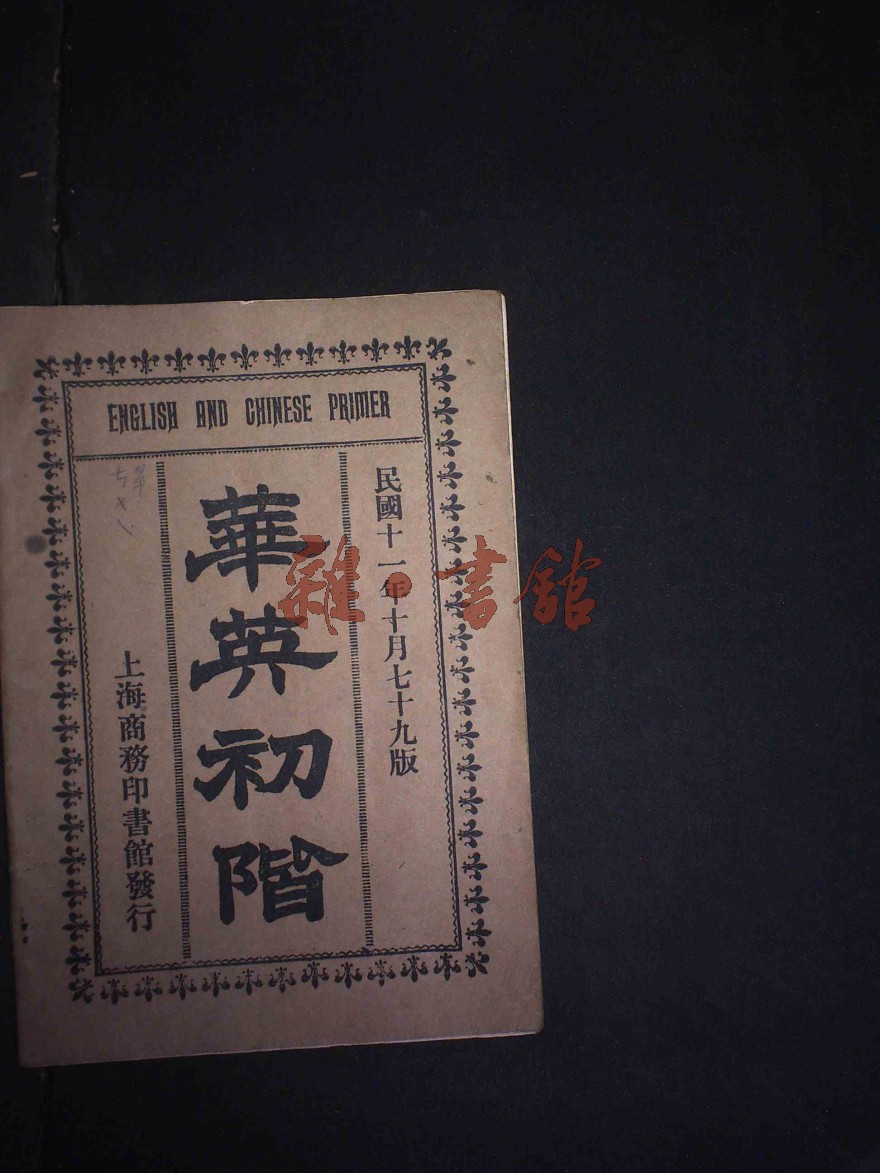 ENGLISH AND CHINESE PRIMER
民國十一年十月七十九版
華英初階
上海商務印書館發行
雜·書館